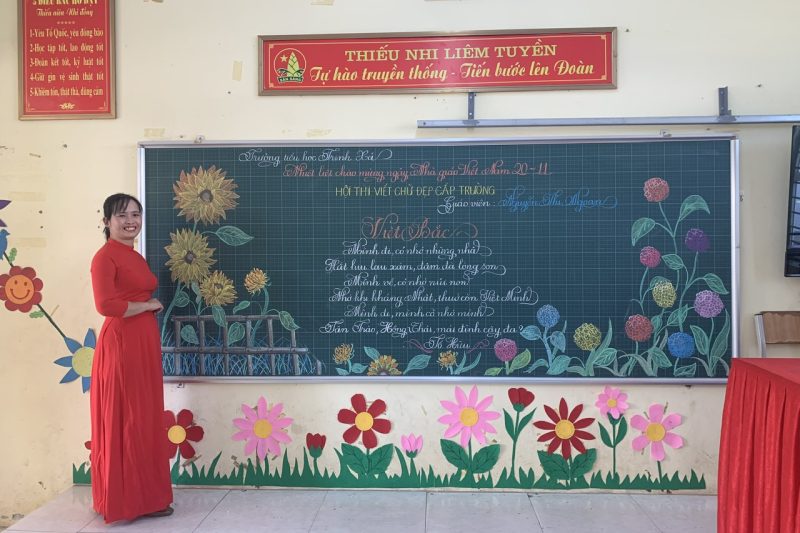 5 ĐIỀU BÁC HỒ DẠY
Thiếu niên - Nhi đồng
1-Yêu Tổ Quốc, yêu đồng bào
2-Học tập tốt, lao động tốt
3-Đoàn kết tốt, kỷ luật tốt
4-Giữ gìn vệ sinh thật tốt
5-Khiêm tốn, thật thà, dũng cảm
THIẾU NHI LIÊM TUYỀN
Tự hào truyền thống - Tiến bước lên Đoàn
SẴN SÀNG
Trường tiểu học Thịnh Xá
Nhiệt liệt chào mừng ngày Nhà giáo Việt Nam 20-11
HỘI THI VIẾT CHỮ ĐẸP CẤP TRƯỜNG
Giáo viên: Nguyễn Thị
Việt Bắc
Mình đi, có nhớ những nhà
Hắt hiu lau xám, đậm đà lòng son
Mình về, có nhớ núi non
Nhớ khi kháng Nhật, thuở còn Việt Minh
Mình đi, mình có nhớ mình
Tân Trào, Hồng Thái, mái đình, cây đa?
Tố Hữu